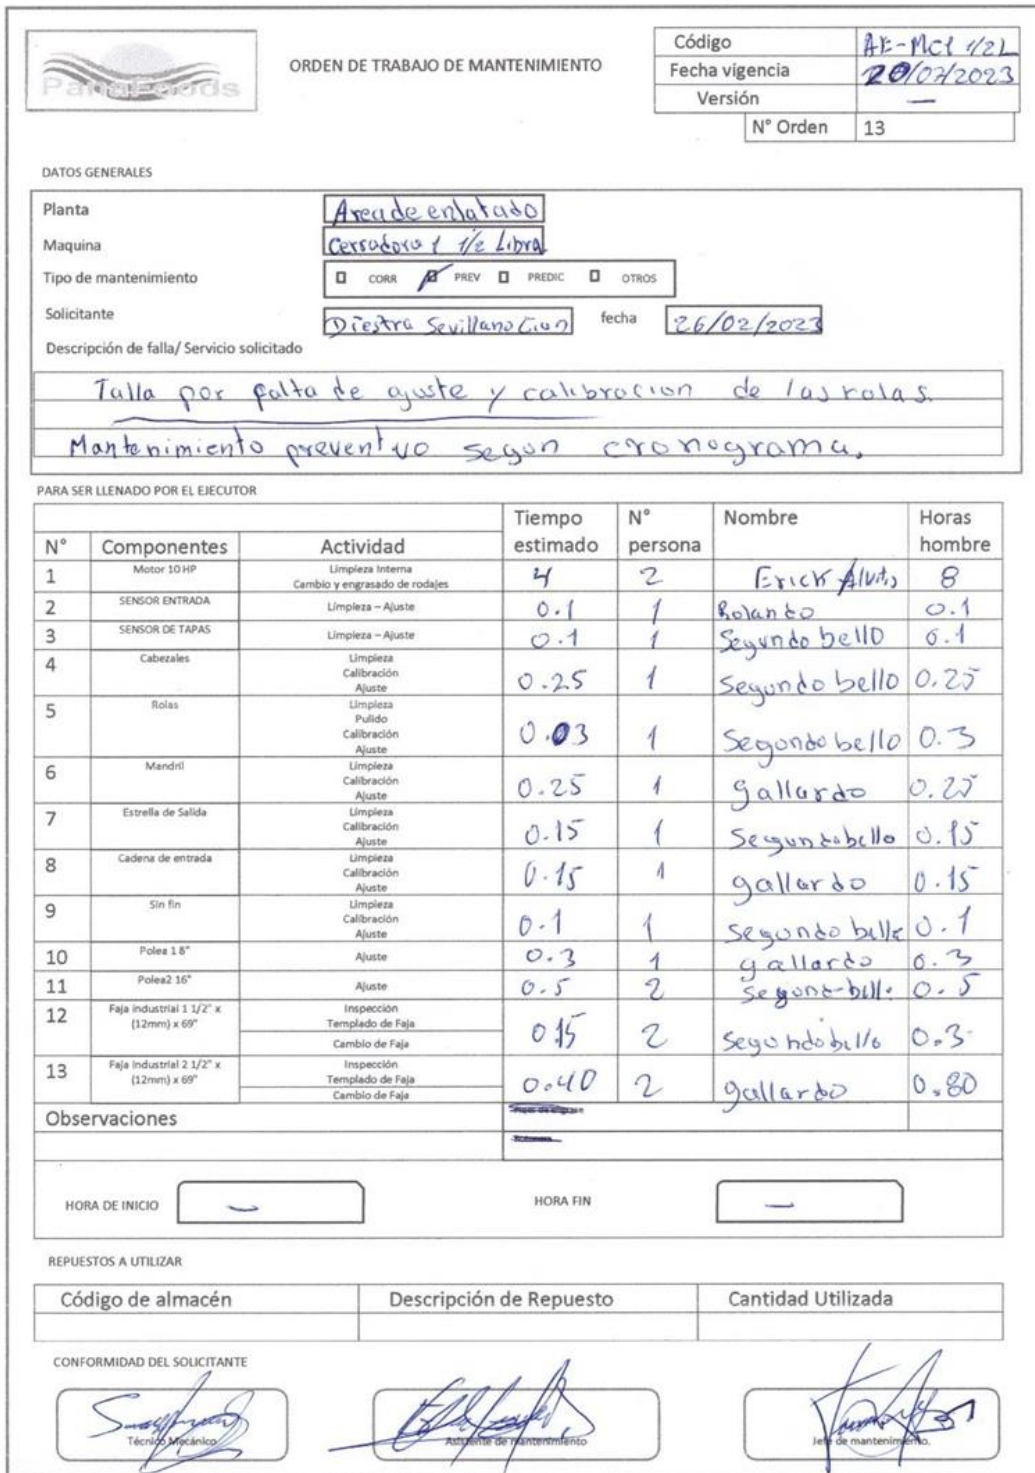 PanaFoods
ORDEN DE TRABAJO DE MANTENIMIENTO
Código AE-MC1 1/2L
Fecha vigencia 20/07/2023
Versión —
N° Orden 13
DATOS GENERALES
Planta Area de enlatado
Maquina Cerradora 1 1/2 Libra
Tipo de mantenimiento CORR PREV PREDIC OTROS
Solicitante Diestra Sevillano fecha 26/02/2023
Descripción de falla/ Servicio solicitado
Talla por falta de ajuste y calibracion de las rolas.
Mantenimiento preventivo segun cronograma.
PARA SER LLENADO POR EL EJECUTOR
N° Componentes Actividad Tiempo estimado N° persona Nombre Horas hombre
1 Motor 10 HP Limpieza Interna 4 2 Erick 8
Cambio y engrasado de rodajes
2 SENSOR ENTRADA Limpieza – Ajuste 0.1 1 Rolando 0.1
3 SENSOR DE TAPAS Limpieza – Ajuste 0.1 1 Segundo bello 0.1
4 Cabezales Limpieza
Calibración 0.25 1 Segundo bello 0.25
Ajuste
5 Rolas Limpieza
Pulido
Calibración 0.03 1 Segundo bello 0.3
Ajuste
6 Mandril Limpieza
Calibración 0.25 1 gallardo 0.25
Ajuste
7 Estrella de Salida Limpieza
Calibración 0.15 1 Segundo bello 0.15
Ajuste
8 Cadena de entrada Limpieza
Calibración 0.15 1 gallardo 0.15
Ajuste
9 Sin fin Limpieza
Calibración 0.1 1 Segundo bello 0.1
Ajuste
10 Polea 1 8" Ajuste 0.3 1 gallardo 0.3
11 Polea2 16" Ajuste 0.5 2 Segundo bello 0.5
12 Faja industrial 1 1/2" x Inspección
(12mm) x 69" Templado de Faja 0 15 2 Segundo bello 0.3
Cambio de Faja
13 Faja industrial 2 1/2" x Inspección
(12mm) x 69" Templado de Faja 0.40 2 gallardo 0.80
Cambio de Faja
Observaciones
HORA DE INICIO — HORA FIN —
REPUESTOS A UTILIZAR
Código de almacén Descripción de Repuesto Cantidad Utilizada
CONFORMIDAD DEL SOLICITANTE
Técnico Mecánico Asistente de mantenimiento Jefe de mantenimiento.